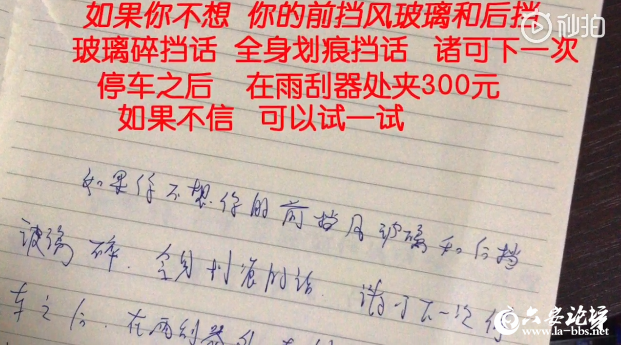 如果你不想 你的前挡风玻璃和后挡
玻璃碎挡话 全身划痕挡话 诸可下一次
停车之后 在雨刮器处夹300元
如果不信 可以试一试
秒拍
如果你不想你的前挡风玻璃和后挡
玻璃碎.全身划痕的话 诸可下一次停
车之后.在雨刮器处
六安论坛
www.la-bbs.net